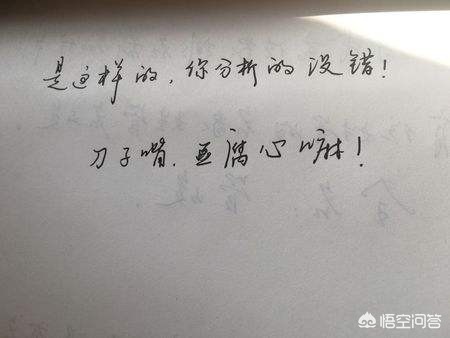 是这样的，你分析的没错！
刀子嘴、豆腐心嘛！
悟空问答